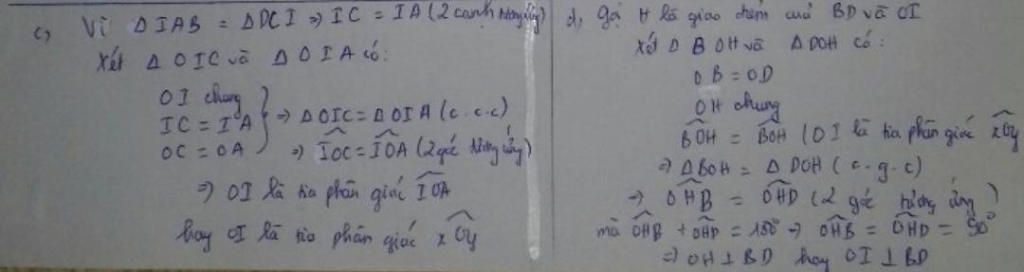 c, Vì Δ IAB = Δ DCI => IC = IA (2 cạnh tương ứng)
Xét Δ OIC và Δ OIA có:
OI chung
IC = IA
OC = OA
=> Δ OIC = Δ OIA (c.c.c)
=> IOC = IOA (2 góc tương ứng)
=> OI là tia phân giác IOA
hay OI là tia phân giác xOy
d, Gọi H là giao điểm của BD và OI
Xét Δ BOH và Δ DOH có:
OB = OD
OH chung
BOH = BOH (OI là tia phân giác xOy
=> Δ BOH = Δ DOH (c.g.c)
=> OHB = OHD (2 góc tương ứng)
mà OHB + OHD = 180° => OHB = OHD = 90°
=> OH ⊥ BD hay OI ⊥ BD